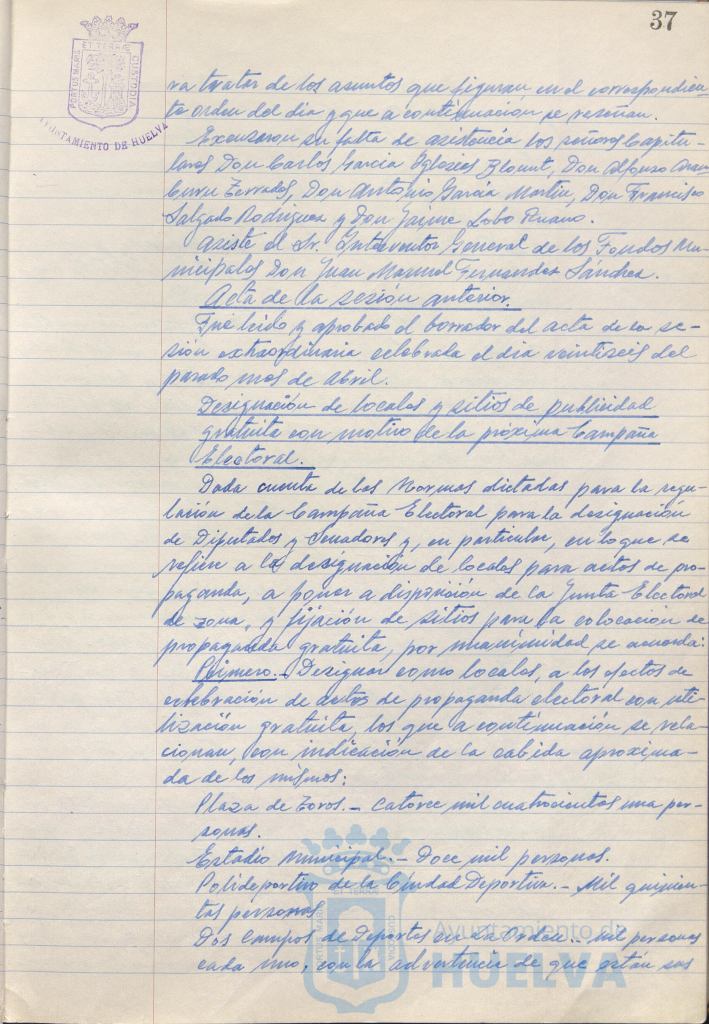 37
PORTUS MARIS ET TERRAE CUSTODIA
AYUNTAMIENTO DE HUELVA
ra tratar de los asuntos que figuran en el correspondien-
te orden del dia y que a continuación se reseñan.
Excusaron su falta de asistencia los señores Capitu-
lares Don Carlos García Yglesias Blount, Don Alfonso Aram-
buru Terrades, Don Antonio García Martín, Don Francisco
Salgado Rodríguez y Don Jaime Lobo
Asiste el Sr. Interventor General de los Fondos Mu-
nicipales Don Juan Manuel Fernandez Sánchez.
Acta de la sesión anterior.
Fue leído y aprobado el borrador del acta de la se-
sión extraordinaria celebrada el dia veintiseis del
pasado mes de Abril.
Designación de locales y sitios de publicidad
gratuita con motivo de la próxima Campaña
Electoral.
Dada cuenta de las Normas dictadas para la regu-
lación de la Campaña Electoral para la designación
de Diputados y Senadores y, en particular, en lo que se
refiere a la designación de locales para actos de pro-
paganda, a poner a disposición de la Junta Electoral
de zona, y fijación de sitios para la colocación de
propaganda gratuita, por unanimidad se acuerda:
Primero.- Designar como locales, a los efectos de
celebración de actos de propaganda electoral con uti-
lización gratuita, los que a continuación se rela-
cionan, con indicación de la cabida aproxima-
da de los mismos:
Plaza de Toros.- Catorce mil cuatrocientas una per-
sonas.
Estadio Municipal.- Doce mil personas.
Polideportivo de la Ciudad Deportiva.- Mil quinien-
tas personas
Dos Campos de Deportes en la Orden.- mil personas
cada uno, con la advertencia de que están sus
Ayuntamiento de
HUELVA